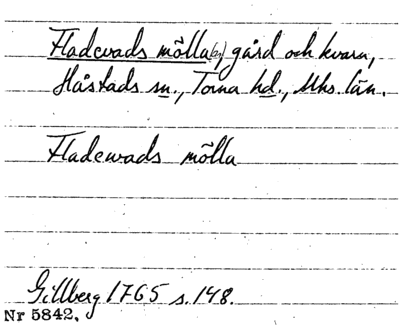 Fladevads mölla(n), gård och kvarn,
Håstads sn., Torna hd., Mhs. län.
Fladewads mölla
Gillberg 1765 s. 148.
Nr 5842.